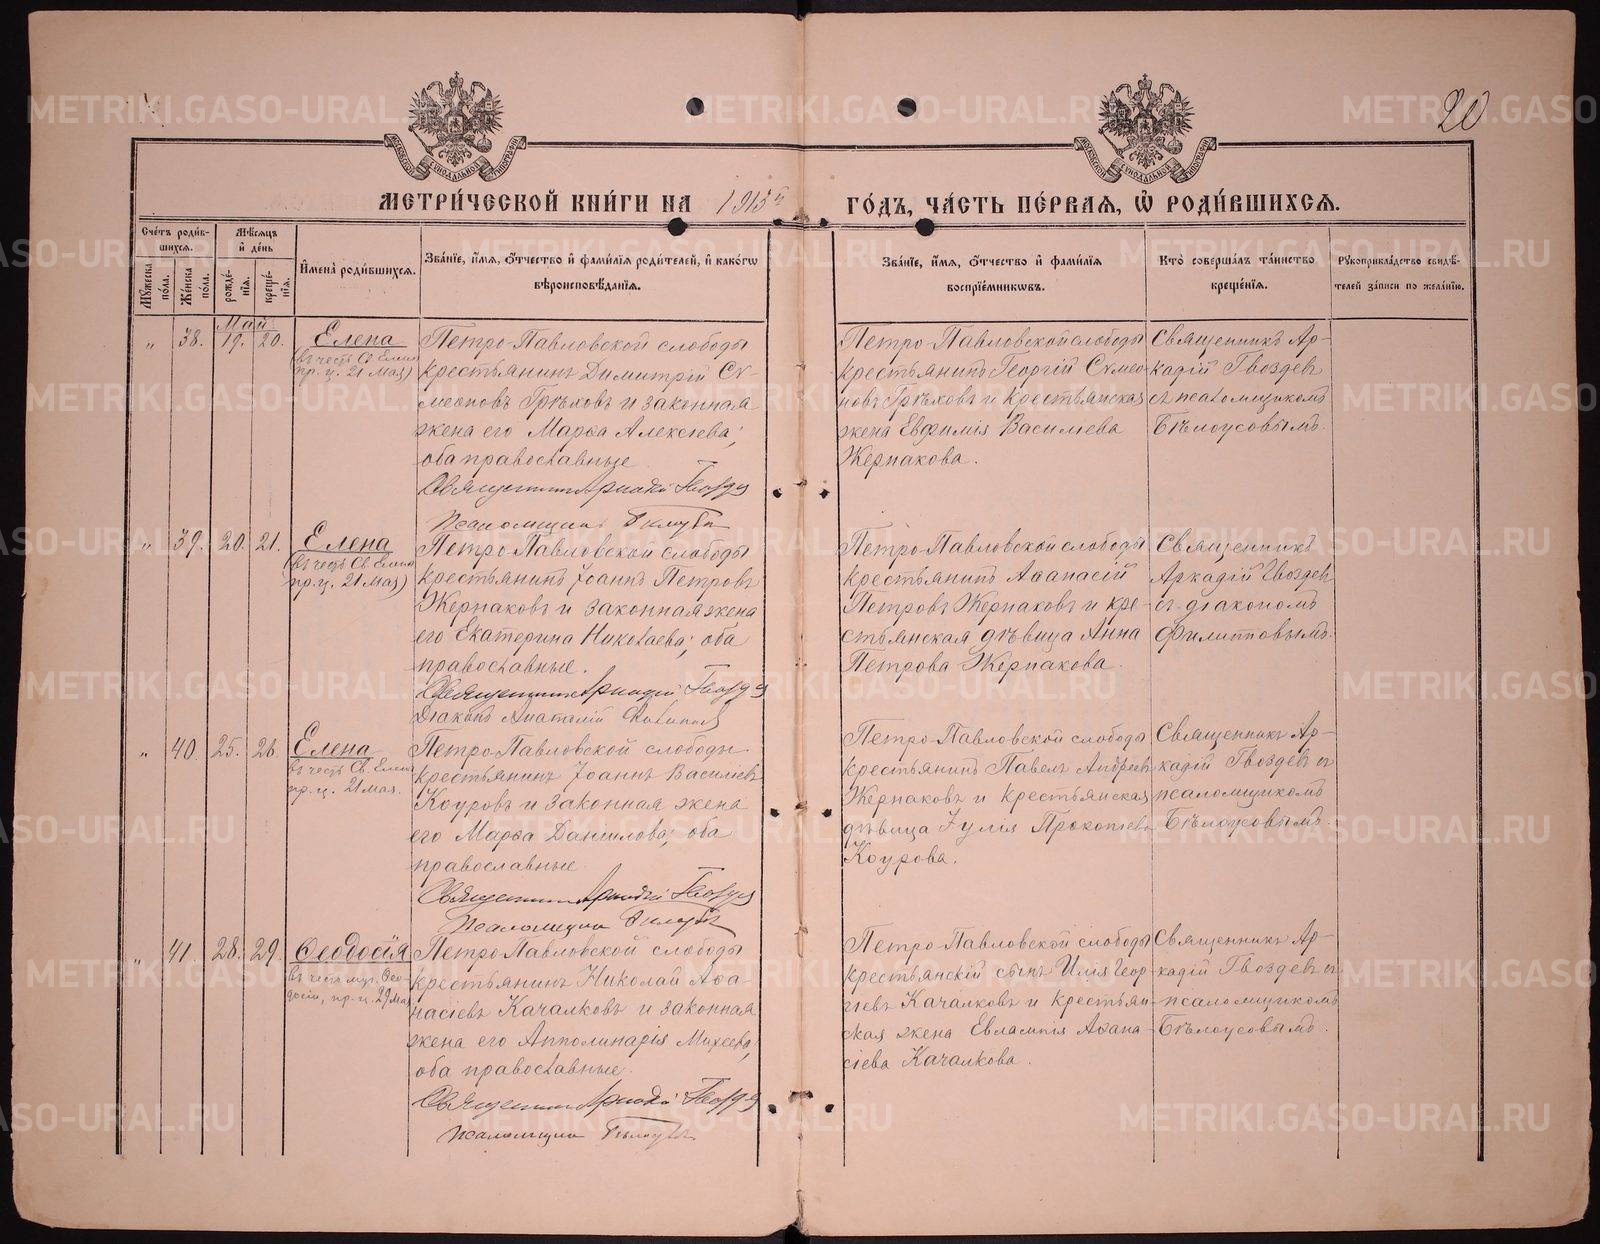 20
МЕТРИ́ЧЕСКОЙ КНИ́ГИ НА 1915й ГО́ДЪ, ЧА́СТЬ ПЕ́РВАЯ, Ѡ РОДИ́ВШИХСЯ.
Сче́тъ роди́в-
шихся.
Му́жеска по́ла.
Же́нска по́ла.
Мѣ́сяцъ
и де́нь
рожде́-
нїя.
креще́-
нїя.
Имена̀ роди́вшихся.
Зва́нїе, и́мя, о́тчество и фами́лїя роди́телей, и како́гѡ
вѣроисповѣ́данїя.
Зва́нїе, и́мя, о́тчество и фами́лїя
воспрїе́мникѡвъ.
Кто̀ соверша́лъ та́инство
креще́нїя.
Рукоприкла́дство свидѣ́-
телей за́писи по жела́нїю.
Май
" 38. 19. 20.
Елена
(въ честь Св. Елены
пр. ц. 21 мая)
Петро-Павловской слободы
крестьянинъ Димитрій Су-
меоновъ Грѣховъ и законная
жена его Марѳа Алексіева,
оба православные
Священникъ Аркадій Гвоздев
Псаломщикъ
Петро-Павловской слободы
крестьянинъ Георгій Сумео-
новъ Грѣховъ и крестьянская
жена Евфимія Василіева
Жернакова.
Священникъ Ар-
кадій Гвоздевъ
съ псаломщикомъ
Бѣлоусовымъ.
" 39. 20. 21.
Елена
(въ честь Св. Елены
пр. ц. 21 мая)
Петро-Павловской слободы
крестьянинъ Іоаннъ Петровъ
Жернаковъ и законная жена
его Екатерина Николаева; оба
православные.
Священникъ Аркадій Гвоздев
Діаконъ Анатолій
Петро-Павловской слободы
крестьянинъ Аѳанасій
Петровъ Жернаковъ и кре-
стьянская дѣвица Анна
Петрова Жернакова.
Священникъ
Аркадій Гвоздев
съ діакономъ
Филипповымъ.
" 40. 25. 26.
Елена
въ честь Св. Елены
пр. ц. 21 мая.
Петро-Павловской слободы
крестьянинъ Іоаннъ Василіевъ
Коуровъ и законная жена
его Марѳа Даниилова; оба
православные.
Священникъ Аркадій Гвоздев
Псаломщикъ
Петро-Павловской слободы
крестьянинъ Павелъ Андреевъ
Жернаковъ и крестьянская
дѣвица Іулія Прокопіева
Коурова.
Священникъ Ар-
кадій Гвоздевъ съ
псаломщикомъ
Бѣлоусовымъ.
" 41. 28. 29.
Ѳеодосія
въ честь муч. Ѳео-
досіи, пр. ц. 29 мая
Петро-Павловской слободы
крестьянинъ Николай Аѳа-
насіевъ Качалковъ и законная
жена его Апполинарія Михеева,
оба православные.
Священникъ Аркадій Гвоздев
Псаломщикъ
Петро-Павловской слободы
крестьянскій сынъ Илія Геор-
гіевъ Качалковъ и крестьян-
ская жена Евлампія Аѳана-
сіева Качалкова.
Священникъ Ар-
кадій Гвоздевъ съ
псаломщикомъ
Бѣлоусовымъ.
METRIKI.GASO-URAL.RU